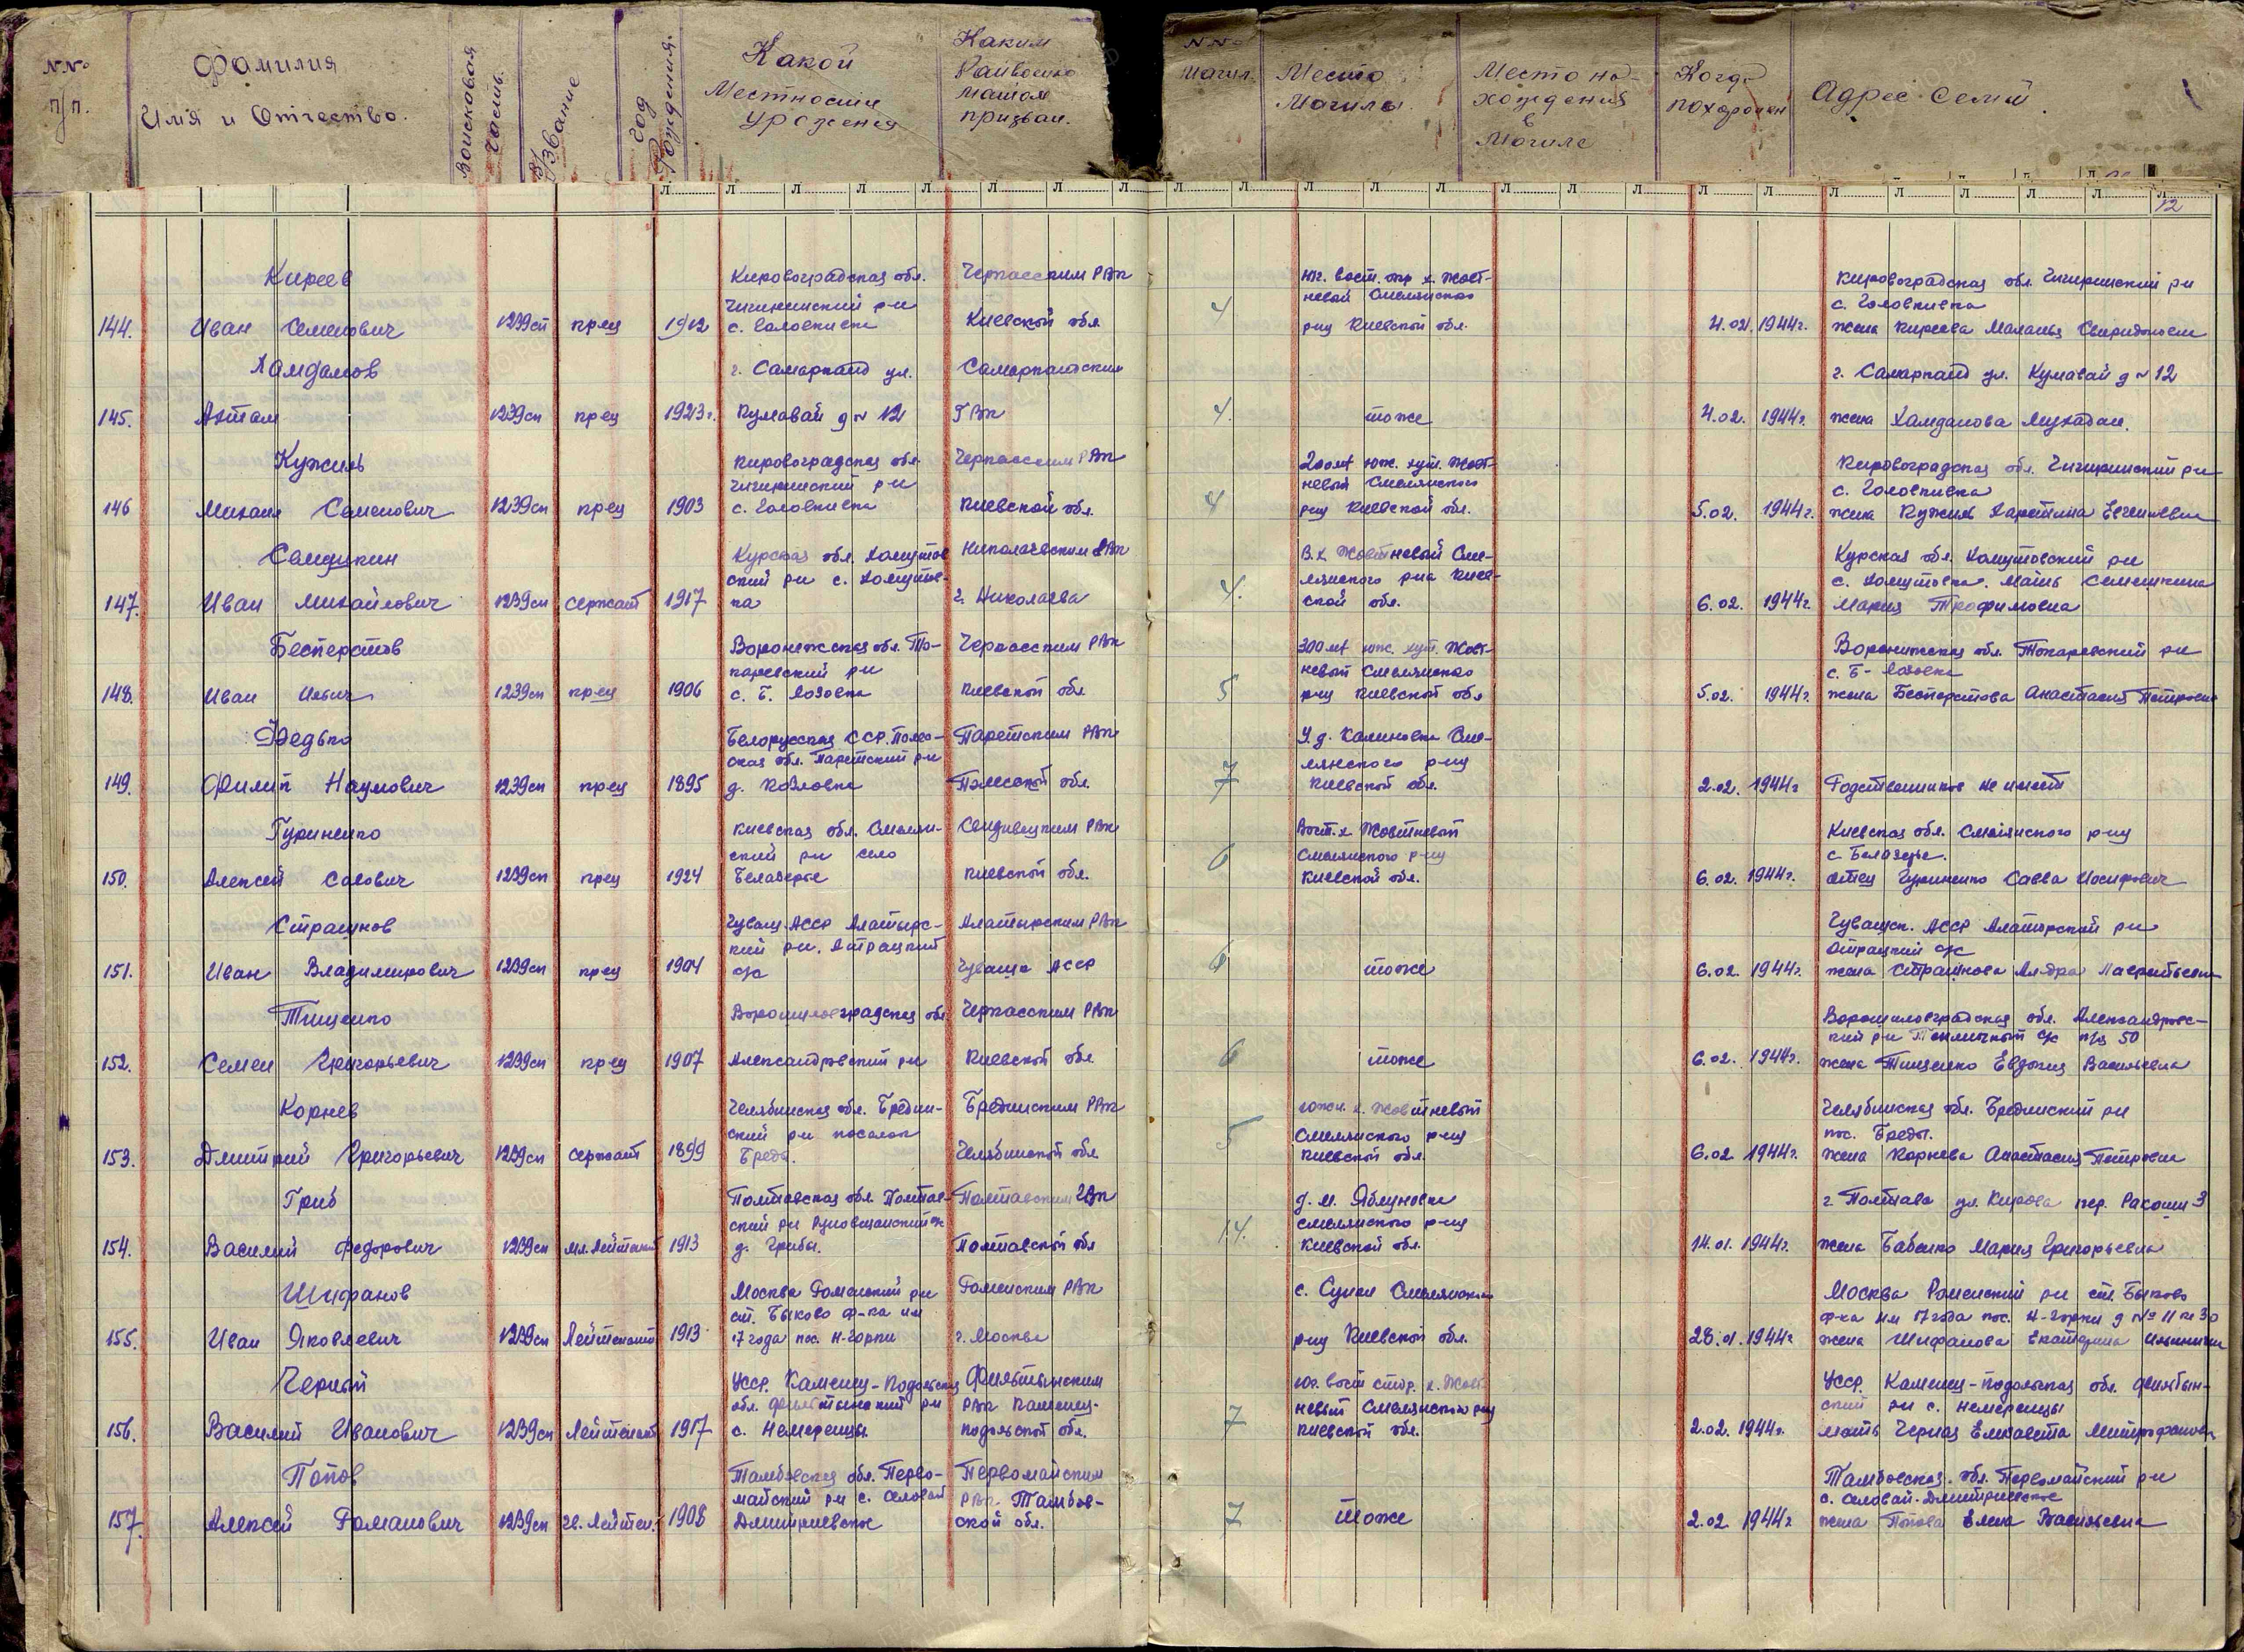 NNo п/п.
Фамилия
Имя и Отчество.
Войсковая часть.
В/Звание
Год Рождения.
Какой
Местности
урожен
Каким
Райвоенко
матом
призван.
NNo
Могил.
Место
Могилы.
Место на-
хождения
в
Могиле
Когда
похоронен
Адрес семьи.
12
Киреев
144. Иван Семенович 1239сп кр-ец 1912
Кировоградская обл.
Чигиринский р-н
с. Головкивка
Черкасским РВК
Киевской обл.
4
юг. вост. окр х. Жовт-
невый Смелянского
р-на Киевской обл.
4.02.1944г.
Кировоградская обл. Чигиринский р-н
с. Головкивка
жена Киреева Маланья Свиридоновна
Хамдамов
145. Ахтам 1239сп кр-ец 1923г.
г. Самарканд ул.
Кумавай д N 12
Самаркандским
ГВК
4.
тоже
4.02. 1944г.
г. Самарканд ул. Кумавай д N 12
жена Хамданова Мухабам.
Кужиль
146 Михаил Семенович 1239сп кр-ец 1903
Кировоградская обл.
Чигиринский р-н
с. Головкивка
Черкасским РВК
Киевской обл.
4
200мt юж. хут. Жовт-
невый Смелянского
р-на Киевской обл.
5.02. 1944г.
Кировоградская обл. Чигиринский р-н
с. Головкивка
жена Кужиль Харетина Евгеньевна
Семушкин
147. Иван Михайлович 1239сп сержант 1917
Курская обл. Хомутов
ский р-н с. Хомутов-
ка
Николаевским РВК
г. Николаева
4.
В.х. Жовтневый Сме-
лянского р-на Киев-
ской обл.
6.02. 1944г.
Курская обл. Хомутовский р-н
с. Хомутовка. Мать Семешкина
Мария Трофимовна
Бесперстов
148. Иван Ильич 1239сп кр-ец 1906
Воронежская обл. То-
каревский р-н
с. Б. Лозовка
Черкасским РВК
Киевской обл.
5
300мt юж. хут. Жовт-
невый Смелянского
р-на Киевской обл.
5.02. 1944г.
Воронежская обл. Токаревский р-н
с. Б-Лазовка
жена Бесперстова Анастасия Петровна
Федько
149. Филип Наумович 1239сп кр-ец 1895
Белорусская ССР. Полес-
ская обл. Паретский р-н
д. Козловка
Паретским РВК
Полесской обл.
7
У.д. Калиновка Сме-
лянского р-на
Киевской обл.
2.02. 1944г
Родственников не имеет
Гуриненко
150. Алексей Савович 1239сп кр-ец 1924
Киевская обл. Смелян-
ский р-н село
Белазерье
Свидивецким РВК
Киевской обл.
6
Вост. х. Жовтневый
Смелянского р-на
Киевской обл.
6.02. 1944г.
Киевская обл. Смелянского р-на
с. Белазерье.
отец Гуриненко Савва Иосифович
Страшнов
151. Иван Владимирович 1239сп кр-ец 1904
Чуваш. АССР Алатырс-
кий р-н. Атрацкий
с/с
Алатырским РВК
Чуваша АССР
6
тоже
6.02. 1944г.
Чувашск. АССР Алатырский р-н
Атрацкий с/с
жена Страшнова Лаврентьевна
Тищенко
152. Семен Григорьевич 1239сп кр-ец 1907
Ворошиловградская обл
Александровский р-н
Черкасским РВК
Киевской обл
6
тоже
6.02. 1944г.
Ворошиловградская обл. Александровс-
кий р-н с/с п/я 50
жена Тищенко Евдокия Васильевна
Корнев
153. Дмитрий Григорьевич 1239сп сержант 1899
Челябинская обл. Бредин-
ский р-н поселок
Бреды.
Брединским РВК
Челябинской обл
5
южн. х. Жовтневый
Смелянского р-на
Киевской обл.
6.02 1944г.
Челябинская обл. Брединский р-н
пос. Бреды.
жена Корнева Анастасия Петровна
Гриб
154. Василий Федорович 1239сп мл. Лейтенант 1913
Полтавская обл. Полтав-
ский р-н с/с
д. Грибы.
Полтавским ГВК
Полтавской обл
14.
д. м. Яблуновка
Смелянского р-на
Киевской обл.
14.01. 1944г.
г. Полтава ул. Кирова пер. Ракоши 3
жена Бабенко Мария Григорьевна
Шифанов
155. Иван Яковлевич 1239сп Лейтенант 1913
Москва Раменский р-н
ст. Быково ф-ка им
17 года пос. Н-Горки
Раменским РВК
г. Москва
с. Сунки Смелянского
р-на Киевской обл.
28.01.1944г
Москва Раменский р-н ст. Быково
ф-ка им 17 года пос. Н-Горки д No 11 кв 30
жена Шифанова Екатерина Ильинична
Черный
156. Василий Иванович 1239сп Лейтенант 1917
УССР. Каменец-Подольская
обл. Фельштынский р-н
с. Немеренцы
Фельштынским
РВК Каменец-
подольской обл.
7
юг. вост стор. х. Жовт-
невый Смелянского р-на
Киевской обл.
2.02. 1944г.
УССР Каменец-подольская обл. Фельштын-
ский р-н с. Немеренцы
мать Черная Елизавета Митрофановна
Попов
157. Алексей Романович 1239сп гв. Лейтен. 1908
Тамбовская обл. Перво-
майский р-н с. Оловай
Дмитриевское
Первомайским
РВК Тамбов-
ской обл.
7
тоже
2.02. 1944г.
Тамбовская обл. Первомайский р-н
с. Оловай-Дмитриевское
жена Попова Елена Васильевна